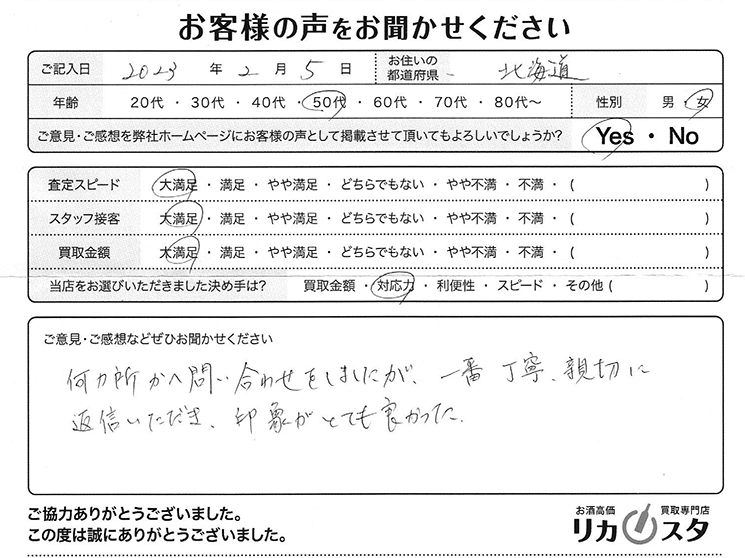 お客様の声をお聞かせください
ご記入日 2023 年 2 月 5 日 お住いの都道府県 北海道
年齢 20代・30代・40代・50代・60代・70代・80代〜 性別 男・女
ご意見・ご感想を弊社ホームページにお客様の声として掲載させて頂いてもよろしいでしょうか? Yes・No
査定スピード 大満足・満足・やや満足・どちらでもない・やや不満・不満・( )
スタッフ接客 大満足・満足・やや満足・どちらでもない・やや不満・不満・( )
買取金額 大満足・満足・やや満足・どちらでもない・やや不満・不満・( )
当店をお選びいただきました決め手は? 買取金額・対応力・利便性・スピード・その他 ( )
ご意見・ご感想などぜひお聞かせください
何カ所かへ問い合わせをしましたが、一番 丁寧、親切に
返信いただき、印象がとても良かった。
ご協力ありがとうございました。
この度は誠にありがとうございました。
お酒高価 買取専門店
リカスタ